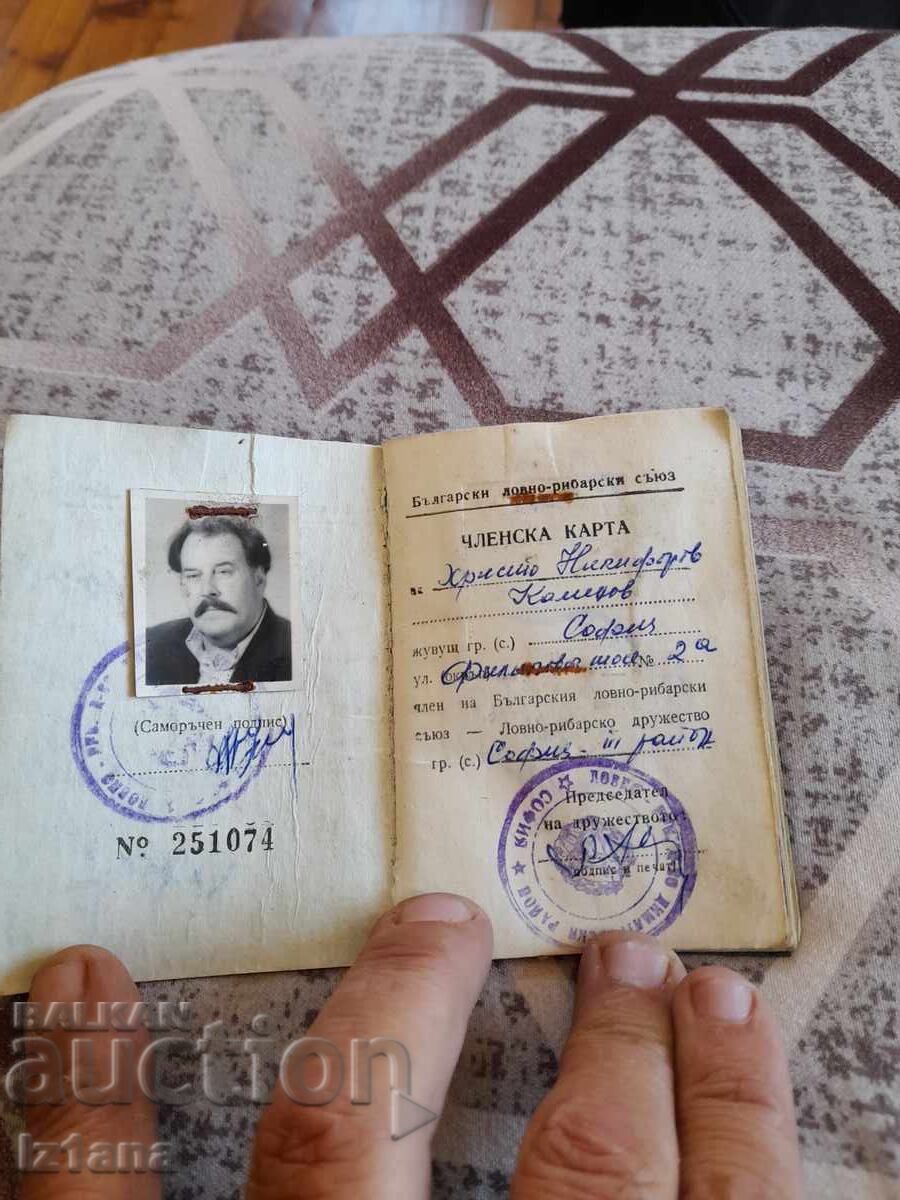 (Саморъчен подпис)
№ 251074
Български ловно-рибарски съюз
ЧЛЕНСКА КАРТА
на Христо Никифоров
живущ гр. (с.) София
ул. № 2а
член на Българския ловно-рибарски
съюз — Ловно-рибарско дружество
гр. (с.) София - III район
Председател
на дружеството:
(подпис и печат)
СОФИЯ
РАЙОН
BALKAN
auction
Iz1ana